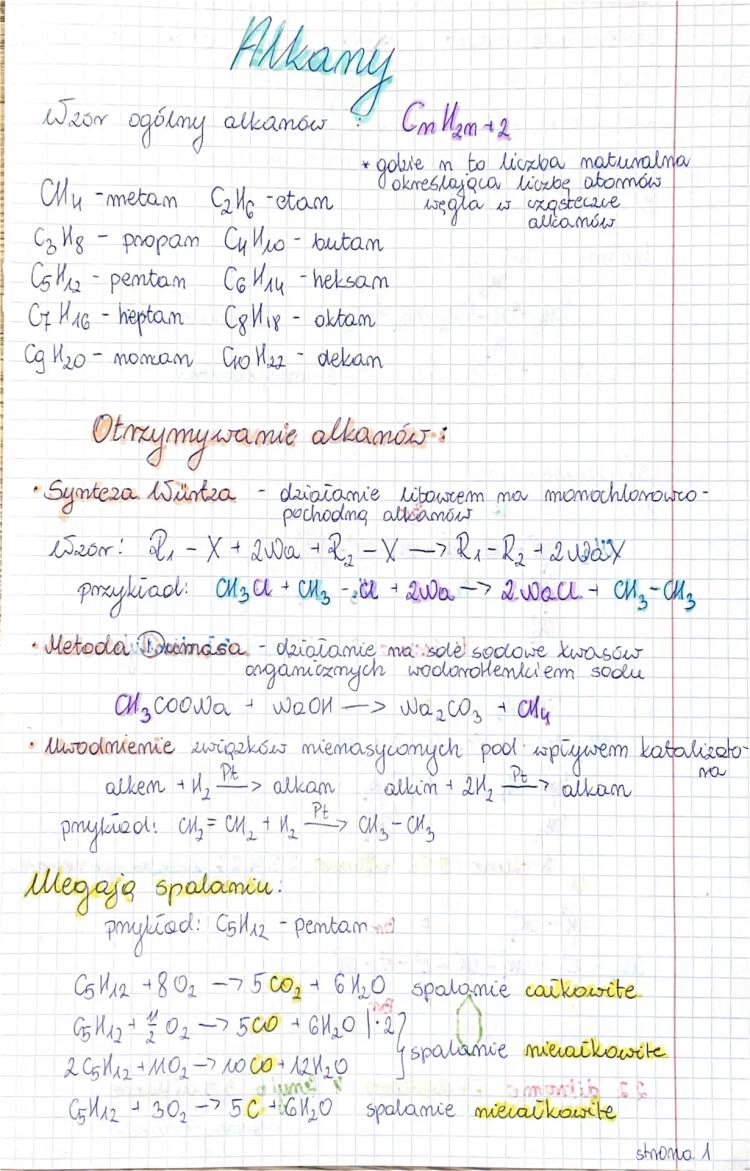 Alkany
Wzór ogólny alkanów : CnH2n+2
* gdzie n to liczba naturalna
określająca liczbę atomów
węgla w cząsteczce
alkanów
CH4 - metan C2H6 - etan
C3H8 - propan C4H10 - butan
C5H12 - pentan C6H14 - heksan
C7H16 - heptan C8H18 - oktan
C9H20 - nonan C10H22 - dekan
Otrzymywanie alkanów:
• Synteza Würtza - działanie litowcem na monochlorowco-
pochodną alkanów
Wzór: R1 - X + 2Na + R2 - X → R1 - R2 + 2NaX
przykład: CH3Cl + CH3 - Cl + 2Na → 2NaCl + CH3 - CH3
• Metoda Dumasa - działanie na sole sodowe kwasów
organicznych wodorotlenkiem sodu
CH3COONa + NaOH → Na2CO3 + CH4
• Uwodnienie związków nienasyconych pod wpływem katalizato-
ra
alken + H2 Pt→ alkan alkin + 2H2 Pt→ alkan
przykład: CH2 = CH2 + H2 Pt→ CH3 - CH3
Ulegają spalaniu:
przykład: C5H12 - pentan
C5H12 + 8O2 → 5CO2 + 6H2O spalanie całkowite
C5H12 + 11/2 O2 → 5CO + 6H2O |·2
2C5H12 + 11O2 → 10CO + 12H2O } spalanie niecałkowite
C5H12 + 3O2 → 5C + 6H2O spalanie niecałkowite
strona 1